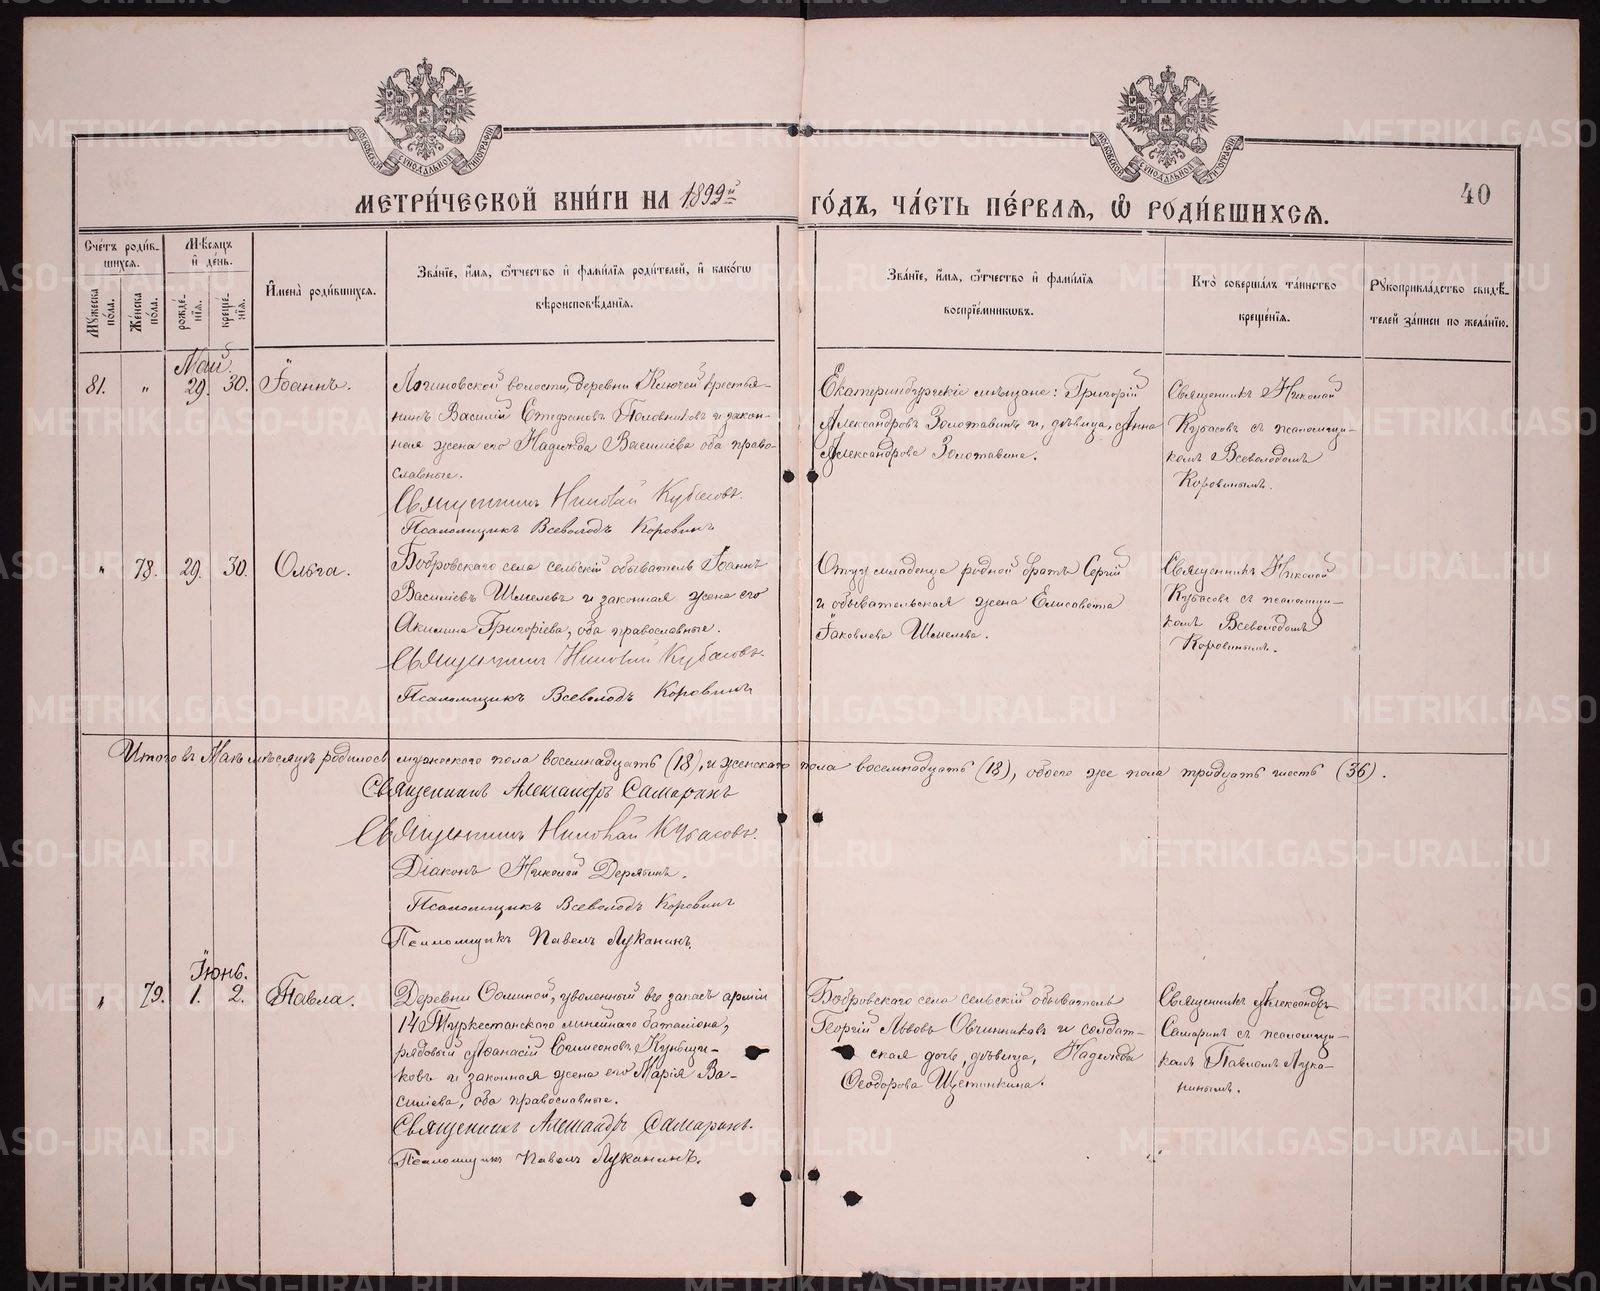 МОСКОВСКОЙ СѴНОДАЛЬНОЙ ТИПОГРАФІИ
МОСКОВСКОЙ СѴНОДАЛЬНОЙ ТИПОГРАФІИ
МЕТРИ́ЧЕСКОЙ КНИ́ГИ НА 1899й ГО́ДЪ, ЧА́СТЬ ПЕ́РВАѦ, Ѡ РОДИ́ВШИХСѦ.
40
Сче́тъ роди́в-
шихся.
Мѣ́сяцъ
и де́нь.
Мꙋ́жеска по́ла.
Же́нска по́ла.
рожде́-нїя.
креще́-нїя.
Имена̀ роди́вшихся.
Зва́нїе, и́мя, ѻ́тчество и фами́лїя роди́телей, и како́гѡ
вѣроисповѣ́данїя.
Зва́нїе, и́мя, ѻ́тчество и фами́лїя
воспрїе́мникѡвъ.
Кто̀ соверша́лъ та́инство
креще́нїя.
Рꙋкоприкла́дство свидѣ́-
телей за́писи по жела́нїю.
Май.
81. " 29. 30. Іоаннъ.
Логиновской волости, деревни Ключей крестья-
нинъ Василій Стефановъ Половниковъ и закон-
ная жена его Надежда Васильева оба право-
славные.
Священникъ Николай Кубасовъ.
Псаломщикъ Всеволодъ Коровинъ
Екатеринбургскіе мѣщане: Григорій
Александровъ Золотавинъ и, дѣвица, Анна
Александрова Золотавина.
Священникъ Николай
Кубасовъ съ псаломщи-
комъ Всеволодомъ
Коровинымъ.
" 78. 29. 30. Ольга.
Бобровскаго села сельскій обыватель Іоаннъ
Василіевъ Шмелевъ и законная жена его
Акилина Григоріева, оба православные.
Священникъ Николай Кубасовъ.
Псаломщикъ Всеволодъ Коровинъ
Отцу младенца родной братъ Сергій
и обывательская жена Елисавета
Іаковлева Шмелева.
Священникъ Николай
Кубасовъ съ псаломщи-
комъ Всеволодомъ
Коровинымъ.
Итого въ Маѣ мѣсяцѣ родилось мужескаго пола восемнадцать (18), и женскаго пола восемнадцать (18), обоего же пола тридцать шесть (36).
Священникъ Александръ Самаринъ
Священникъ Николай Кубасовъ.
Діаконъ Николай Дерябинъ.
Псаломщикъ Всеволодъ Коровинъ
Псаломщикъ Павелъ Луканинъ.
Іюнь.
" 79. 1. 2. Павла.
Деревни уволенный въ запасъ арміи
14 Туркестанскаго линейнаго баталіона,
рядовый Аѳанасій Симеоновъ Куньщи-
ковъ и законная жена его Марія Ва-
силіева, оба православные.
Священникъ Александръ Самаринъ.
Псаломщикъ Павелъ Луканинъ.
Бобровскаго села сельскій обыватель
Георгій Львовъ Овчинниковъ и солдат-
ская дочь, дѣвица, Надежда
Ѳеодорова Щетинкина.
Священникъ Александръ
Самаринъ съ псаломщи-
комъ Павломъ Лука-
нинымъ.
METRIKI.GASO-URAL.RU